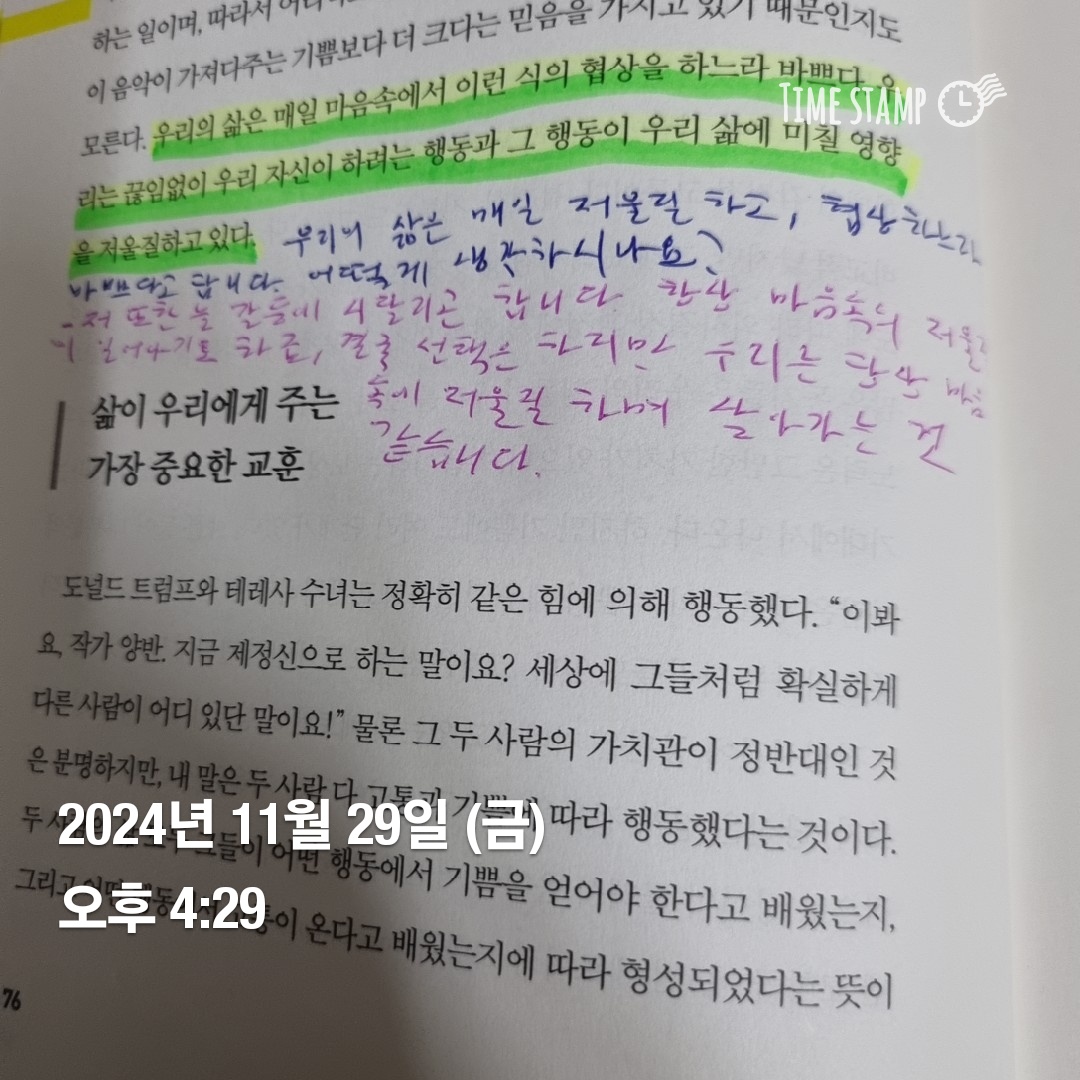 하는 일이며, 따라서
이 음악이 가져다주는 기쁨보다 더 크다는 믿음을 가지고 있기 때문인지도
모른다. 우리의 삶은 매일 마음속에서 이런 식의 협상을 하느라 바쁘다. 우
리는 끊임없이 우리 자신이 하려는 행동과 그 행동이 우리 삶에 미칠 영향
을 저울질하고 있다.
TIME STAMP
우리의 삶은 매일 저울질 하고, 협상하느라
바쁘다고 합니다. 어떻게 생각하시나요?
- 저 또한 늘 갈등에 시달리곤 합니다. 한상 마음속의 저울질
이 일어나기도 하죠, 결국 선택은 하지만 우리는 단상 마음
속에 저울질 하며 살아가는 것
같습니다.
삶이 우리에게 주는
가장 중요한 교훈
도널드 트럼프와 테레사 수녀는 정확히 같은 힘에 의해 행동했다. “이봐
요, 작가 양반. 지금 제정신으로 하는 말이요? 세상에 그들처럼 확실하게
다른 사람이 어디 있단 말이요!” 물론 그 두 사람의 가치관이 정반대인 것
은 분명하지만, 내 말은 두 사람 다 고통과 기쁨에 따라 행동했다는 것이다.
두 그들이 어떤 행동에서 기쁨을 얻어야 한다고 배웠는지,
그리고 온다고 배웠는지에 따라 형성되었다는 뜻이
2024년 11월 29일 (금)
오후 4:29
76